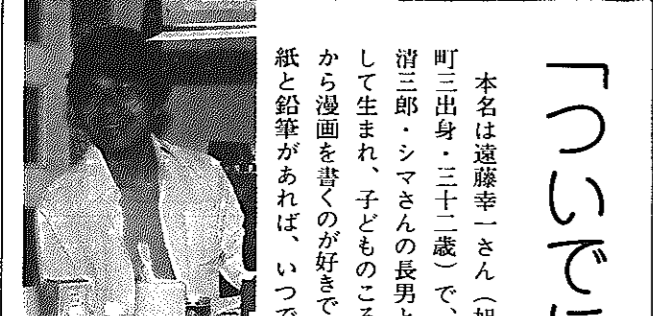 「ついでに
本名は遠藤幸一さん（旭
町三出身・三十二歳）で、
清三郎・シマさんの長男と
して生まれ、子どものころ
から漫画を書くのが好きで
紙と鉛筆があれば、いつで